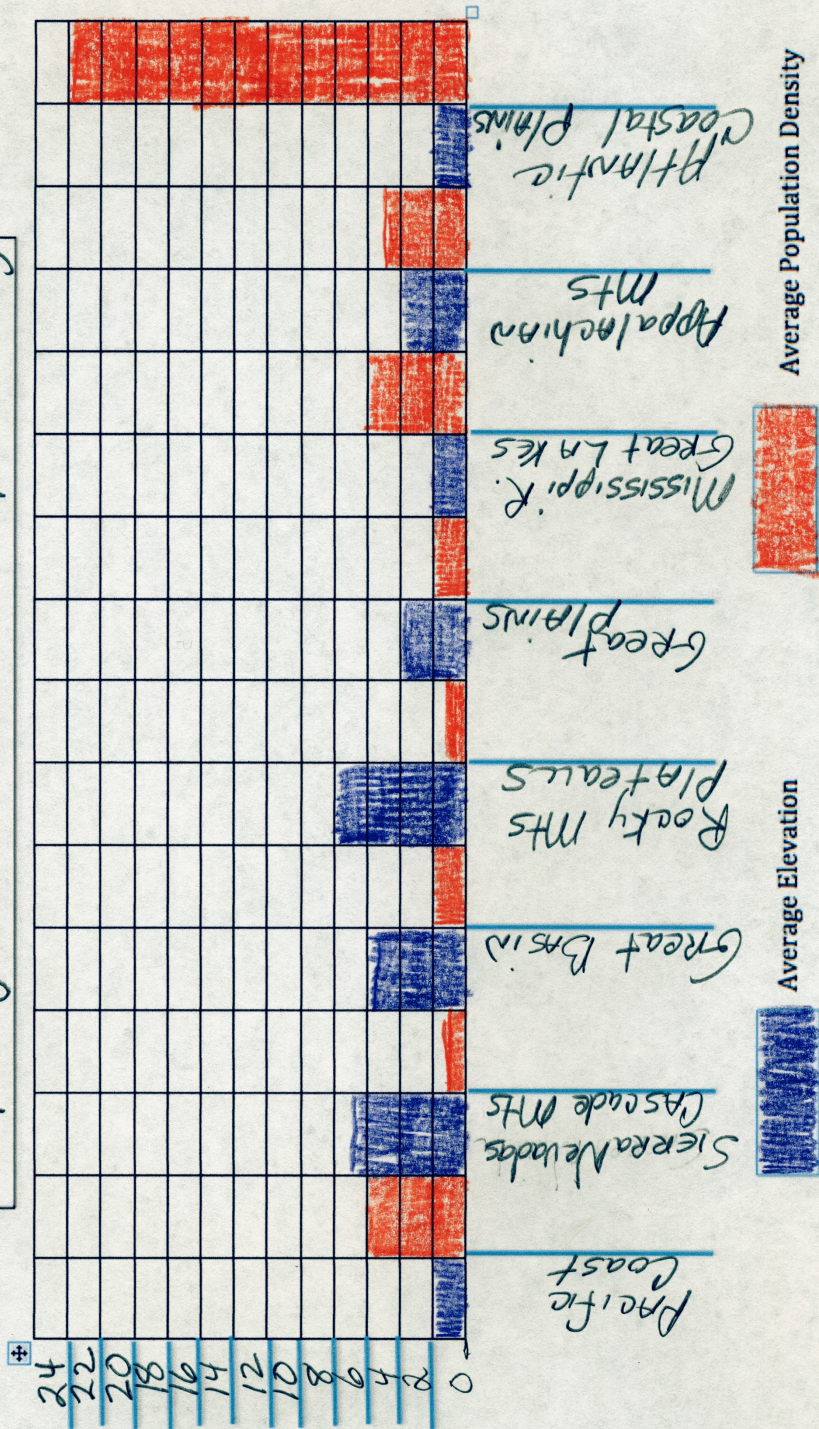 24
22
20
18
16
14
12
10
8
6
4
2
0
Pacific
Coast
Sierra Nevadas
Cascade Mts
Great Basin
Rocky Mts
Plateaus
Great
Plains
Mississippi R.
Great Lakes
Appalachian
Mts
Atlantic
Coastal Plains
Average Elevation
Average Population Density